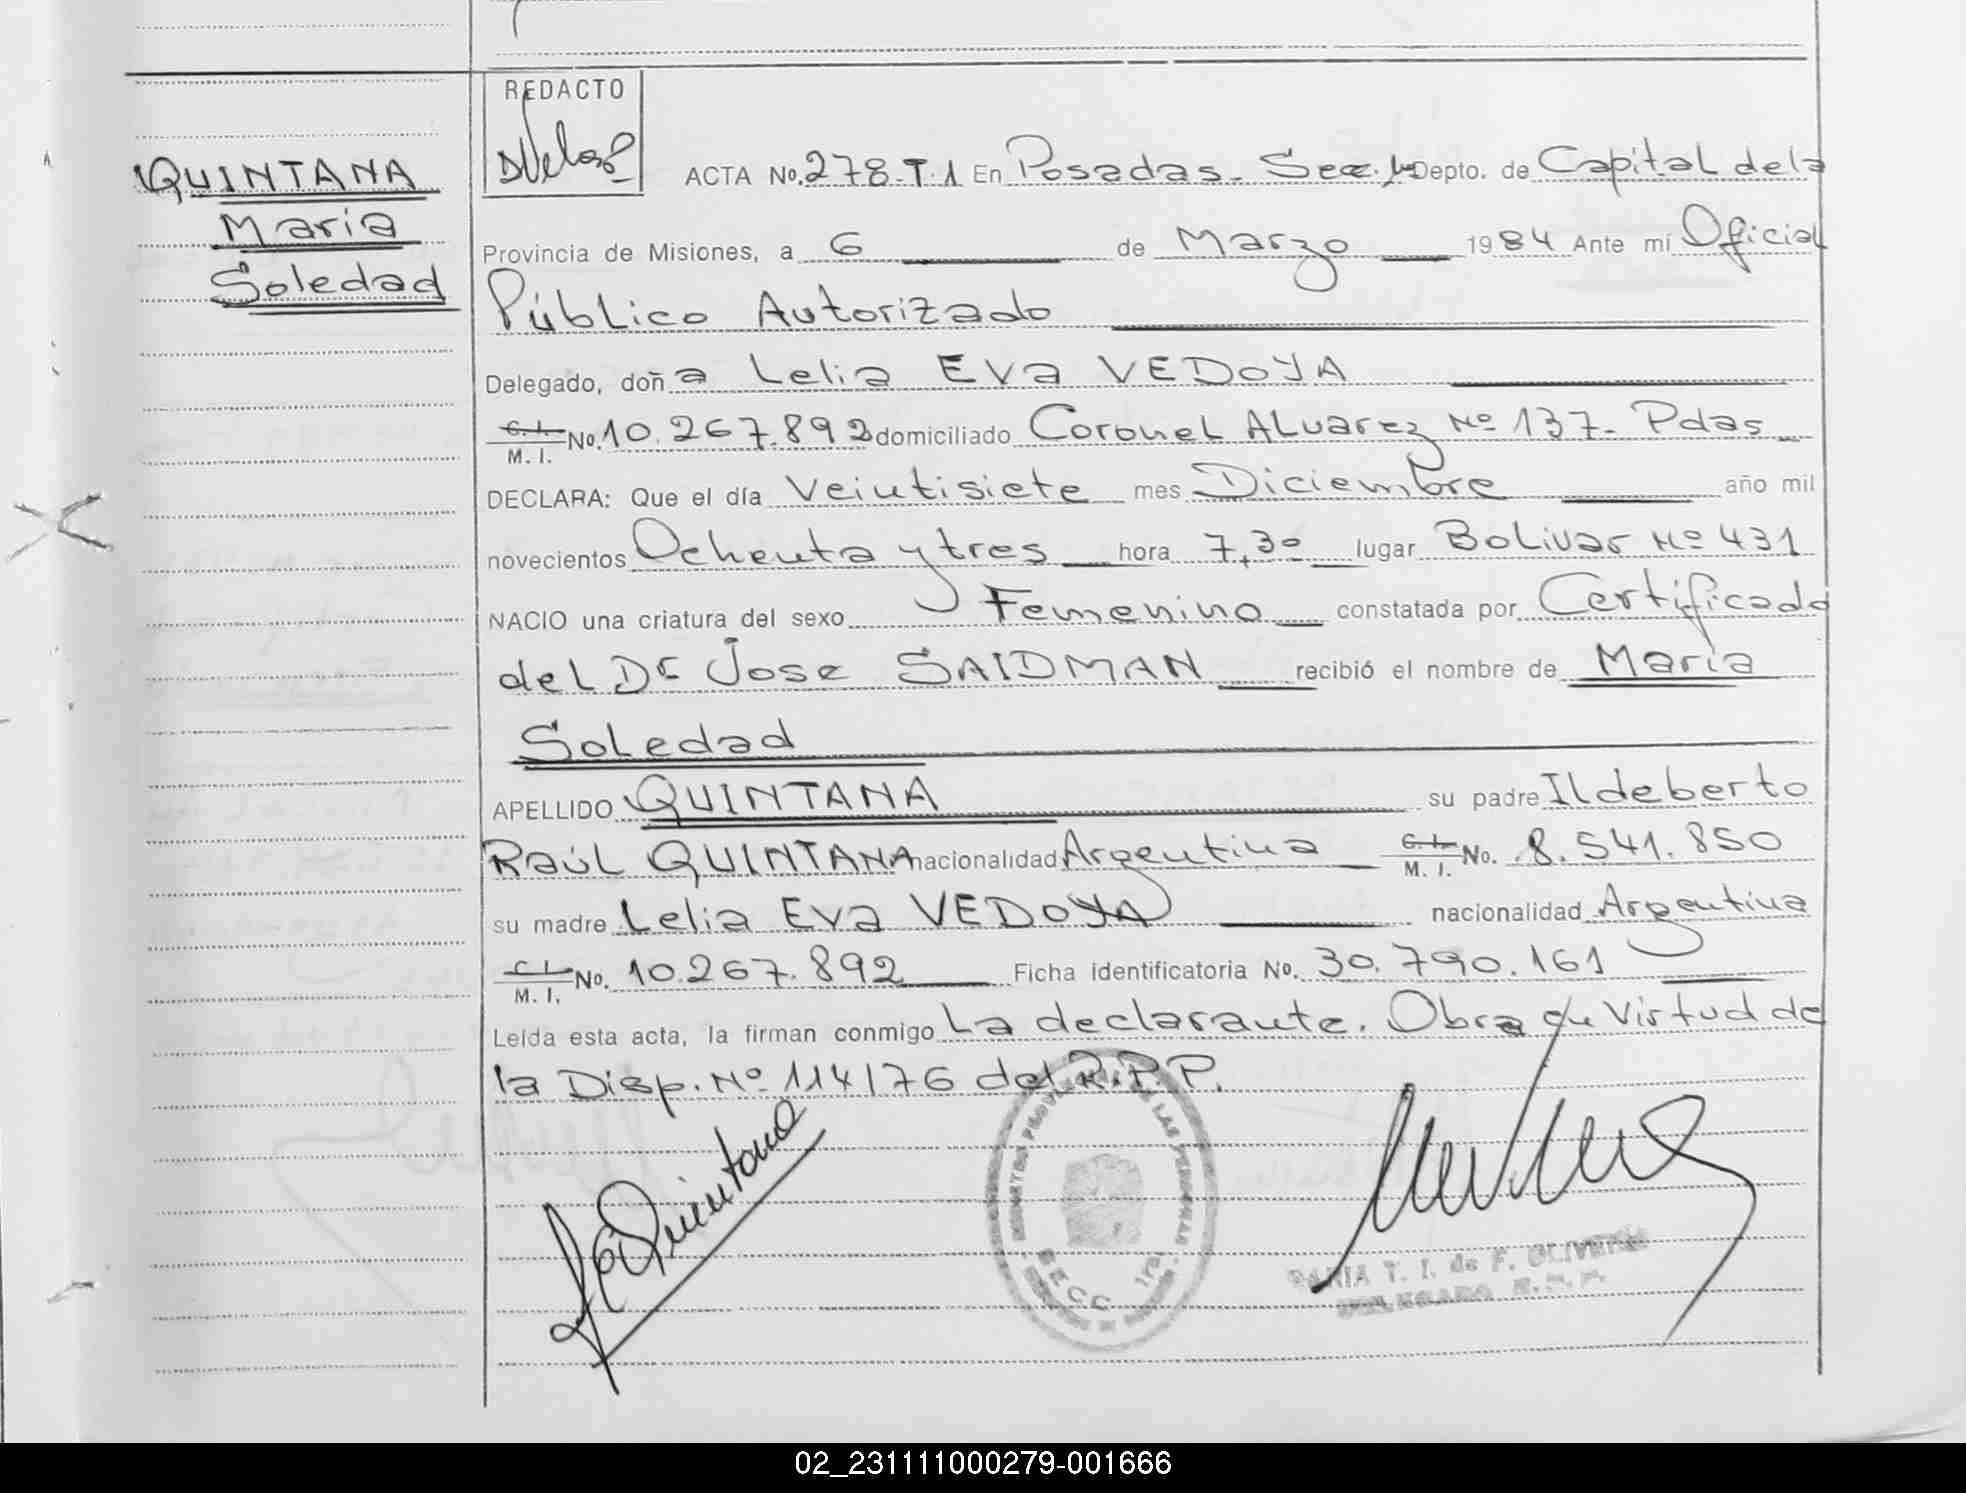 REDACTO
QUINTANA
Maria
Soledad
ACTA No. 278-T.1 En Posadas. Secc. 1ª Depto. de Capital de la
Provincia de Misiones, a 6 de Marzo 1984 Ante mí Oficial
Público Autorizado
Delegado, doña Lelia Eva VEDOYA
C. I. No. 10.267.892 domiciliado Coronel Alvarez Nº 137- Pdas
M. I.
DECLARA: Que el día Veintisiete mes Diciembre año mil
novecientos Ochenta y tres hora 7,30 lugar Bolivar Nº 431
NACIO una criatura del sexo Femenino constatada por Certificado
del Dr Jose SAIDMAN recibió el nombre de Maria
Soledad
APELLIDO QUINTANA su padre Ildeberto
Raúl QUINTANA nacionalidad Argentina C. I. No. 8.541.850
M. I.
su madre Lelia Eva VEDOYA nacionalidad Argentina
C. I. No. 10.267.892 Ficha identificatoria No. 30.790.161
M. I.
Leída esta acta, la firman conmigo La declarante. Obra en Virtud de
la Disp. Nº 114/76 del R.P.P.
Quintana
SECC 1ra
MARIA T. I. de F. OLIVEIRA
DELEGADO R.P.P.
02_231111000279-001666